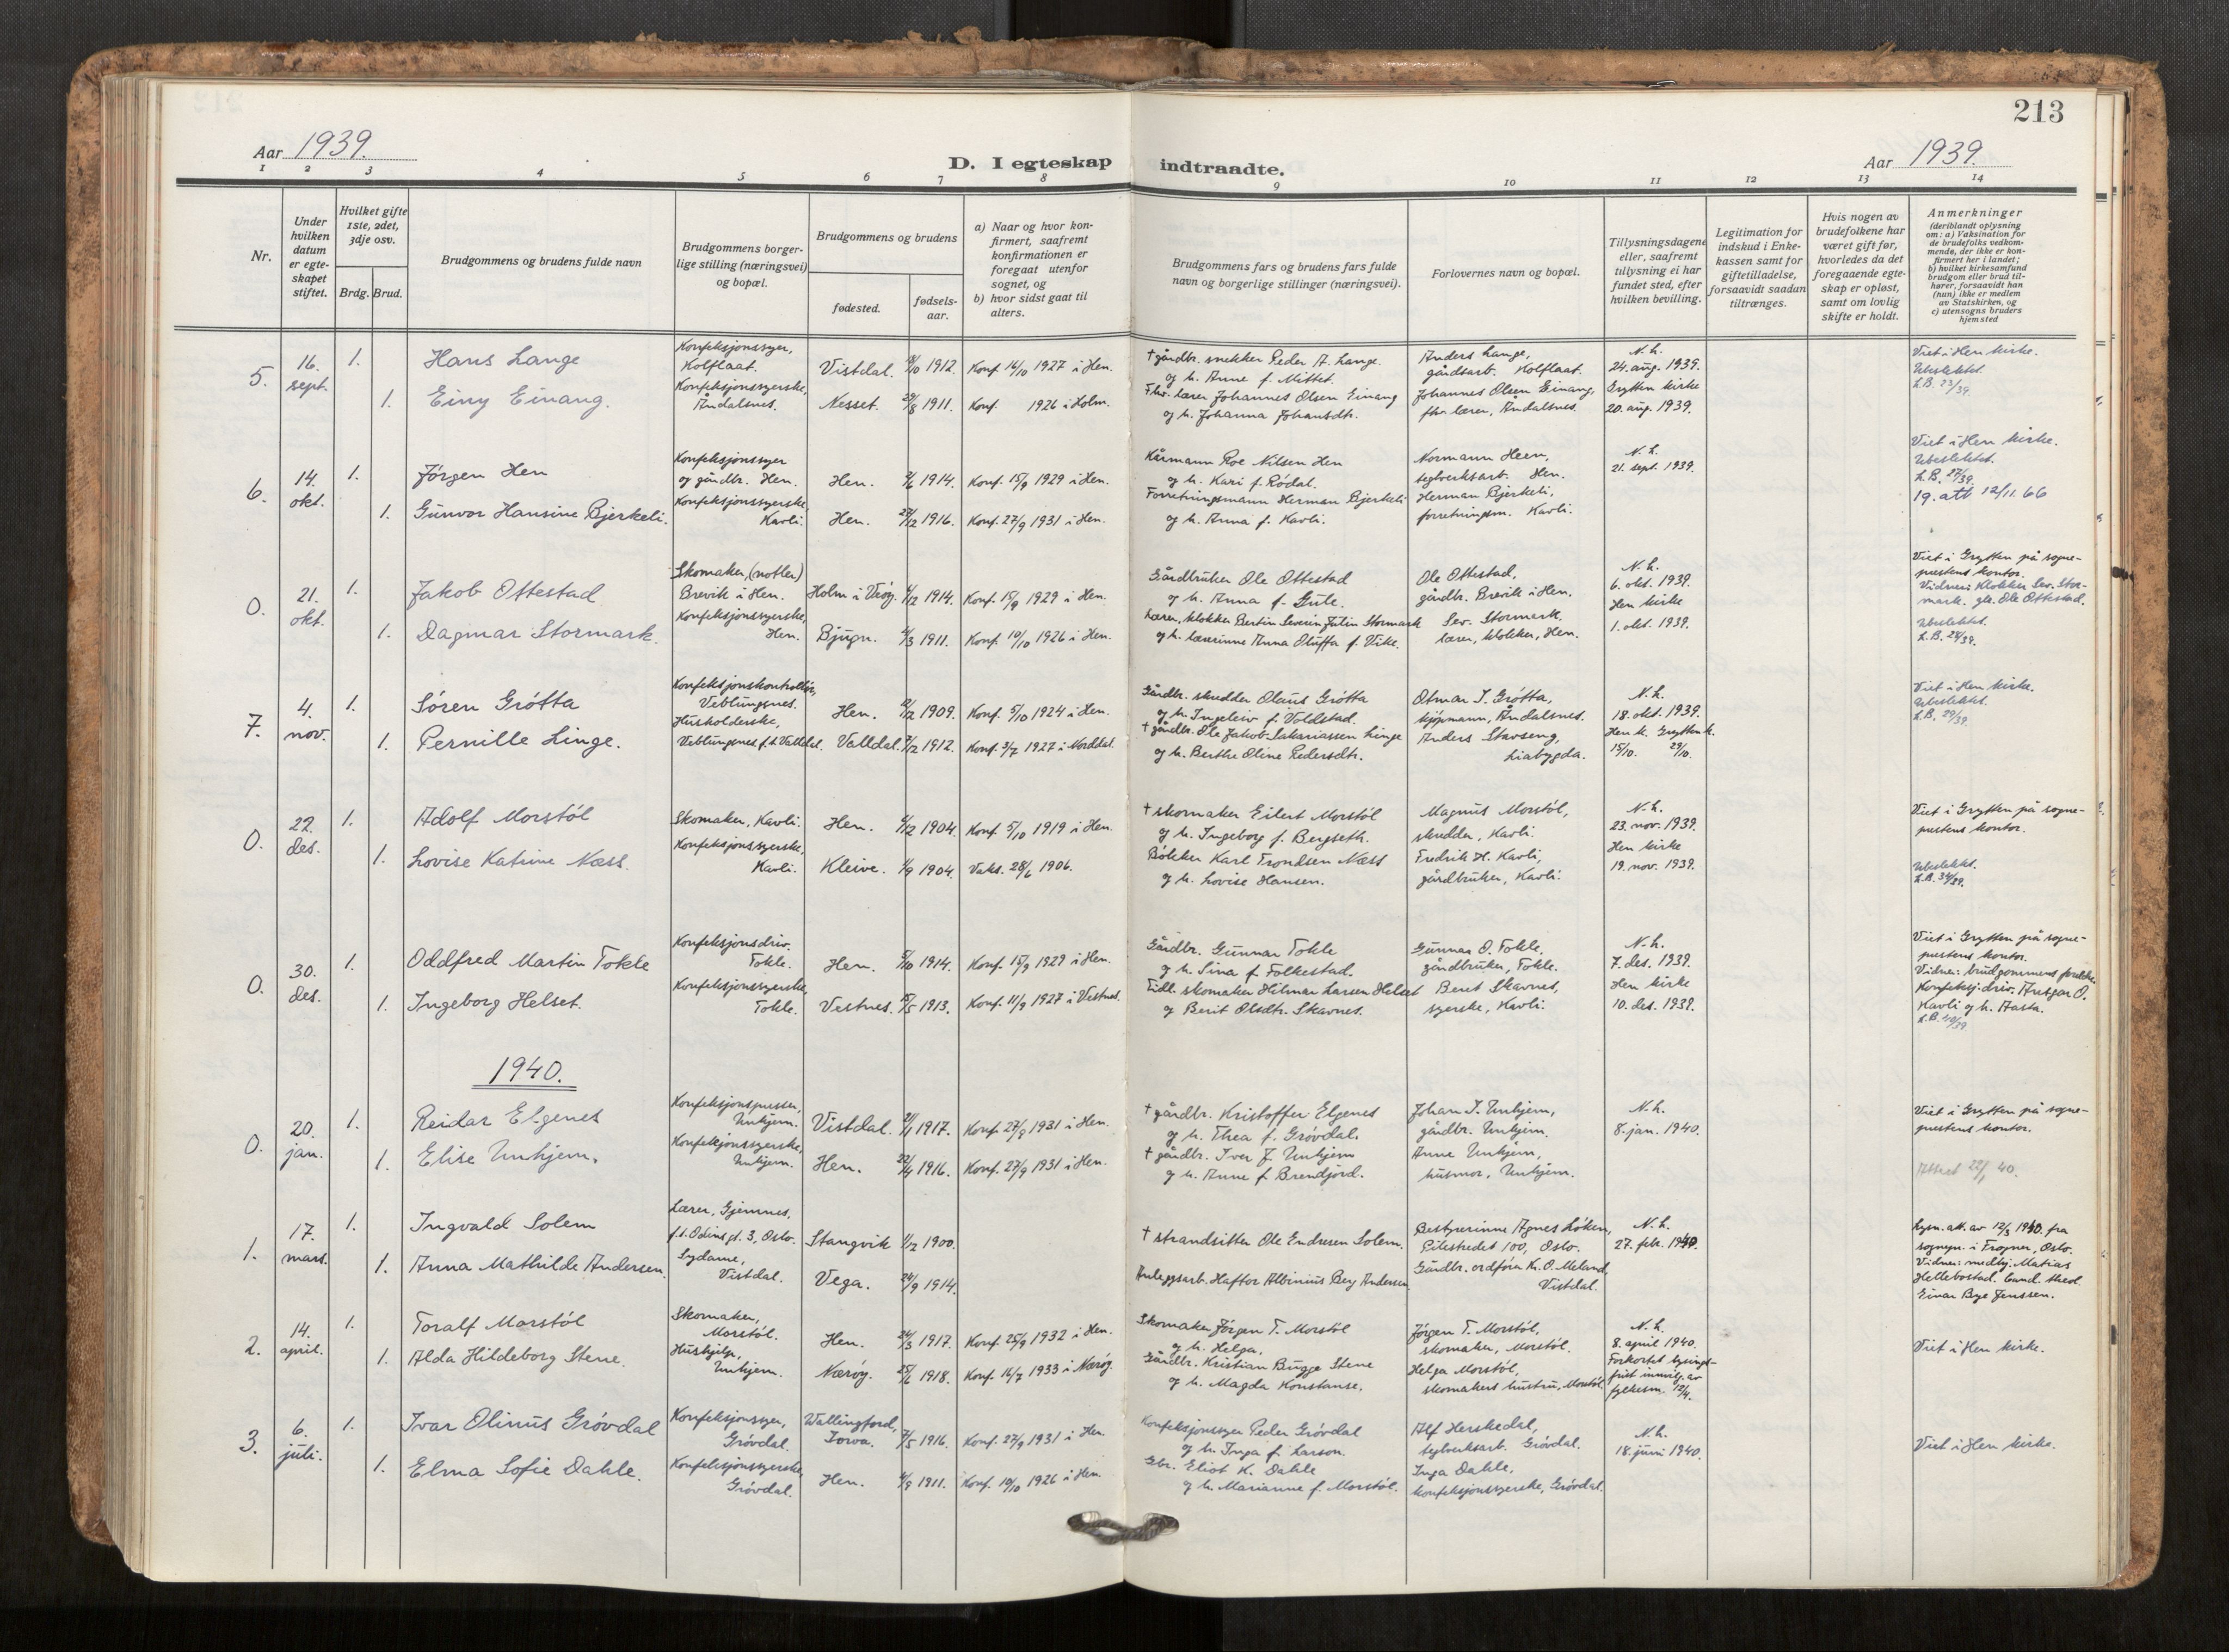 213
Aar 1939.
D. I egteskap indtraadte.
Aar 1939.
1 2 3 4 5 6 7 8 9 10 11 12 13 14
Nr.
Under hvilken datum er egteskapet stiftet.
Hvilket gifte 1ste, 2det, 3dje osv.
Brdg. Brud.
Brudgommens og brudens fulde navn
Brudgommens borgerlige stilling (næringsvei) og bopæl.
Brudgommens og brudens
fødested.
fødselsaar.
a) Naar og hvor konfirmert, saafremt konfirmationen er foregaat utenfor sognet, og
b) hvor sidst gaat til alters.
Brudgommens fars og brudens fars fulde navn og borgerlige stillinger (næringsvei).
Forlovernes navn og bopæl.
Tillysningsdagene eller, saafremt tillysning ei har fundet sted, efter hvilken bevilling.
Legitimation for indskud i Enkekassen samt for giftetilladelse, forsaavidt saadan tiltrænges.
Hvis nogen av brudefolkene har været gift før, hvorledes da det foregaaende egteskap er opløst, samt om lovlig skifte er holdt.
Anmerkninger
(deriblandt oplysning om: a) Vaksination for de brudefolks vedkommende, der ikke er konfirmert her i landet; b) hvilket kirkesamfund brudgom eller brud tilhører, forsaavidt han (hun) ikke er medlem av Statskirken, og c) utensogns bruders hjemsted
5. 16. sept. 1. Hans Lange
Konfeksjonssyer, Kolflaat. Vistdal. 1912. Konf. 16/10 1927 i Hen.
† gårdbr. snekker Peder A. Lange. og h. Anne f. Mittet.
Anders Lange, gårdsarb. Kolflaat.
N.h. 24. aug. 1939.
Viet i Hen kirke. Ubeslektet. L.B. 23/39.
1. Einy Einang.
Konfeksjonssyerske, Åndalsnes. Nesset. 29/8 1911. Konf. 1926 i Holm.
Fhv. lærer Johannes Olsen Einang og h. Johanna Johansdtr.
Johannes Olsen Einang, fhv. lærer, Åndalsnes.
Grytten kirke 20. aug. 1939.
6. 14. okt. 1. Jørgen Hen
Konfeksjonssyer og gårdbr. Hen. Hen. 1914. Konf. 15/9 1929 i Hen.
Kårmann Roe Nilsen Hen og h. Kari f. Rødal.
Normann Heen, teglverksarb. Hen.
N.h. 21. sept. 1939.
Viet i Hen kirke. Ubeslektet. L.B. 27/39.
19. att 12/11.66
1. Gunvor Hansine Bjerkeli.
Konfeksjonssyerske, Kavli. Hen. 27/12 1916. Konf. 27/9 1931 i Hen.
Forretningsmann Herman Bjerkeli og h. Anna f. Kavli.
Herman Bjerkeli, forretningsm. Kavli.
0. 21. okt. 1. Jakob Ottestad
Skomaker, (notler) Brevik i Hen. 1914. Konf. 15/9 1929 i Hen.
Gårdbruker Ole Ottestad og h. Anna f. Gule.
Ole Ottestad, gårdbr. Brevik i Hen.
N.h. 6. okt. 1939. Hen kirke 1. okt. 1939.
Viet i Grytten på sogneprestens kontor. Vidner: Klokker Sev. Stormark. gbr. Ole Ottestad. Ubeslektet. L.B. 28/39.
1. Dagmar Stormark.
Konfeksjonssyerske, Hen. Bjugn. 1911. Konf. 10/10 1926 i Hen.
Lærer, klokker Bertin Severin Julin Stormark og h. lærerinne Anna Oluffa f. Vike.
Sev. Stormark. lærer, klokker, Hen.
7. 4. nov. 1. Søren Grøtta
Konfeksjonskontrollør, Veblungsnes. Hen. 1909. Konf. 5/10 1924 i Hen.
Gårdbr. skredder Olaus Grøtta og h. Ingeleiv f. Voldstad.
Otmar I. Grøtta, kjøpmann, Åndalsnes.
N.h. 18. okt. 1939. Hen k. Grytten k. 15/10. 29/10.
Viet i Hen kirke. Ubeslektet. L.B. 29/39.
1. Pernille Linge.
Husholderske, Veblungsnes f.t. Valldal. Valldal. 1912. Konf. 3/7 1927 i Norddal.
† gårdbr. Ole Jakob Sakariassen Linge og h. Berthe Oline Pedersdtr.
Anders Stavseng, Liabygda.
0. 22. des. 1. Adolf Morstøl
Skomaker, Kavli. Hen. 1904. Konf. 5/10 1919 i Hen.
† skomaker Eilert Morstøl og h. Ingeborg f. Bergseth.
Magnus Morstøl, skredder, Kavli.
N.h. 23. nov. 1939. Hen kirke 19. nov. 1939.
Viet i Grytten på sogneprestens kontor.
Ubeslektet. L.B. 34/39.
1. Lovise Katrine Næss.
Konfeksjonssyerske, Kavli. Kleive. 1904. Vaks. 28/6 1906.
Bøkker Karl Trondsen Næss og h. Lovise Hansen.
Fredrik H. Kavli, gårdbruker, Kavli.
0. 30. des. 1. Oddfred Martin Tokle
Konfeksjonsdriv. Tokle. Hen. 1914. Konf. 15/9 1929 i Hen.
Gårdbr. Gunnar Tokle og h. Sina f. Folkestad.
Gunnar O. Tokle. gårdbruker, Tokle.
N.h. 7. des. 1939. Hen kirke 10. des. 1939.
Viet i Grytten på sogneprestens kontor. Vidner: brudgommens foreldre. Konfeksj.driv. Ansgar O. Kavli og h. Aasta.
1. Ingeborg Helset.
Konfeksjonssyerske, Tokle. Vestnes. 1913. Konf. 11/9 1927 i Vestnes.
Tidl. skomaker Hilmar Larsen Helset og Berit Olsdtr. Skavnes.
Beret Skavnes, syerske, Kavli.
1940.
0. 20. jan. 1. Reidar Elgenes
Konfeksjonspresser, Unhjem. Vistdal. 1917. Konf. 27/9 1931 i Hen.
† gårdbr. Kristoffer Elgenes og h. Thea f. Grøvdal.
Johan I. Unhjem, gårdbr. Unhjem.
N.h. 8. jan. 1940.
Viet i Grytten på sogneprestens kontor.
Attest 22/1 40.
1. Elise Unhjem.
Konfeksjonssyerske, Unhjem. Hen. 22/4 1916. Konf. 27/9 1931 i Hen.
† gårdbr. Iver J. Unhjem og h. Anne f. Brendjord.
Anne Unhjem, husmor, Unhjem.
1. 17. mars. 1. Ingvald Solem
Lærer, Gjemnes, f.t. Odins gt. 3, Oslo. Stangvik 1/12 1900.
† strandsitter Ole Endresen Solem.
Bestyrerinne Agnes Løken, Pilestredet 100, Oslo.
N.h. 27. feb. 1940.
Lysn. att. av 12/3 1940 fra sognepr. i Frogner, Oslo. Vidner: medhj. Matias Hellebostad. Cand. theol. Einar Bye Jenssen.
1. Anna Mathilde Andersen.
Sydame, Vistdal. Vega. 24/9 1914.
Anleggsarb. Haftor Albinius Berg Andersen
Gårdbr. ordfører K. O. Meland, Vistdal.
2. 14. april. 1. Toralf Morstøl
Skomaker, Morstøl. Hen. 24/3 1917. Konf. 25/9 1932 i Hen.
Skomaker Jørgen T. Morstøl og h. Helga.
Jørgen T. Morstøl, skomaker, Morstøl.
N.h. 8. april 1940. Forkortet lysingsfrist innvilg. av fylkesm. 12/4.
Viet i Hen kirke.
1. Alda Hildeborg Stene.
Hushjelp, Unhjem. Nærøy. 25/6 1918. Konf. 16/7 1933 i Nærøy.
Gårdbr. Kristian Bugge Stene og h. Magda Konstanse.
Helga Morstøl, skomakers hustru, Morstøl.
3. 6. juli. 1. Ivar Olinus Grøvdal
Konfeksjonssyer, Grøvdal. Wallingford, Iowa. 7/5 1916. Konf. 27/9 1931 i Hen.
Konfeksjonssyer Peder Grøvdal og h. Inga f. Larson.
Alf Herskedal, teglverksarb. Grøvdal.
N.h. 18. juni 1940.
Viet i Hen kirke.
1. Elma Sofie Dahle.
Konfeksjonssyerske, Grøvdal. Hen. 1911. Konf. 10/10 1926 i Hen.
Gbr. Eliot K. Dahle og h. Marianne f. Morstøl.
Inga Dahle, konfeksjonssyerske, Grøvdal.